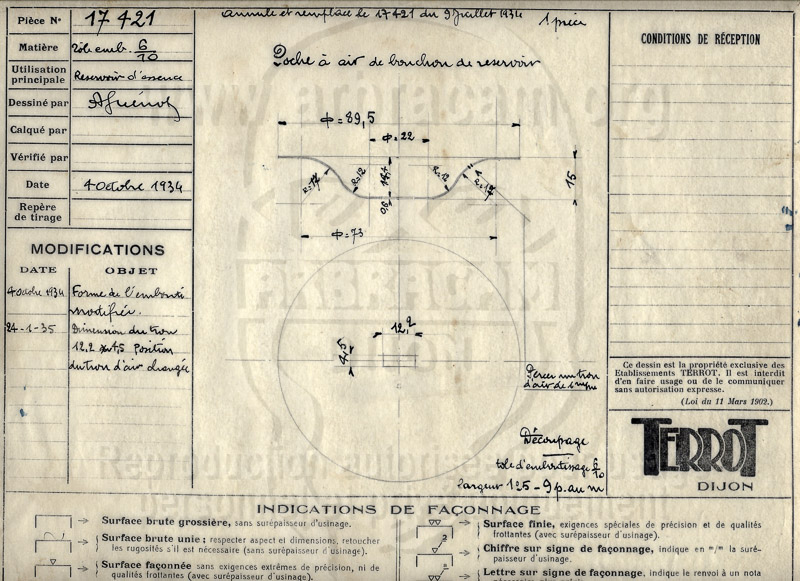 Pièce N° 17421
Matière Tôle emb. 6/10
Utilisation principale Reservoir d'essence
Dessiné par AGuénot
Calqué par
Vérifié par
Date 4 Octobre 1934
Repère de tirage
MODIFICATIONS
DATE OBJET
4 Octobre 1934 Forme de l'embouti
modifiée.
24-1-35 Dimension du trou
12,2 x 4,5 position
du trou d'air changée
annule et remplace le 17421 du 9 Juillet 1934
1 pièce
Poche à air de bouchon de reservoir
Φ=89,5
Φ=22
R=17
R=12
14,4
0,6
R=12
R=17
15
Φ=73
12,2
4,5
Percer un trou
d'air de 1 mm
Découpage
tole d'emboutissage 6/10
largeur 125 - 9 p. au m
CONDITIONS DE RÉCEPTION
Ce dessin est la propriété exclusive des
Etablissements TERROT. Il est interdit
d'en faire usage ou de le communiquer
sans autorisation expresse.
(Loi du 11 Mars 1902.)
TERROT
DIJON
INDICATIONS DE FAÇONNAGE
Surface brute grossière, sans surépaisseur d'usinage.
Surface brute unie; respecter aspect et dimensions, retoucher
les rugosités s'il est nécessaire (sans surépaisseur d'usinage).
Surface façonnée sans exigences extrêmes de précision, ni de
qualités frottantes (avec surépaisseur d'usinage).
Surface finie, exigences spéciales de précision et de qualités
frottantes (avec surépaisseur d'usinage).
Chiffre sur signe de façonnage, indique en "/" la surépaisseur d'usinage.
Lettre sur signe de façonnage, indique le renvoi à un nota
www.arbracam.org
ARBRACAM